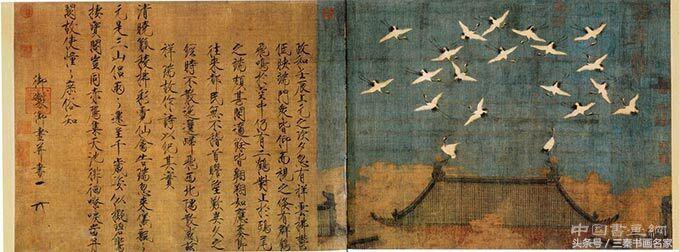 政和壬辰上元之次夕忽有祥雲拂鬱
低映端門衆皆仰而視之倏有群鶴
飛鳴於空中仍有二鶴對止於鴟尾
之端頗甚閑適餘皆翱翔如應奏節
往來都民無不稽首瞻望歎異久之
經時不散迤邐歸飛西北隅散感茲
祥瑞故作詩以紀其實
清曉觚稜拂彩霓仙禽告瑞忽來儀飄〻
元是三山侶兩〻還呈千歲姿似擬碧鸞
棲寶閣豈同赤鴈集天池徘徊嘹唳當丹
闕故使憧〻庶俗知
御製御畫并書
中国書画網
头条号/三秦书画名家